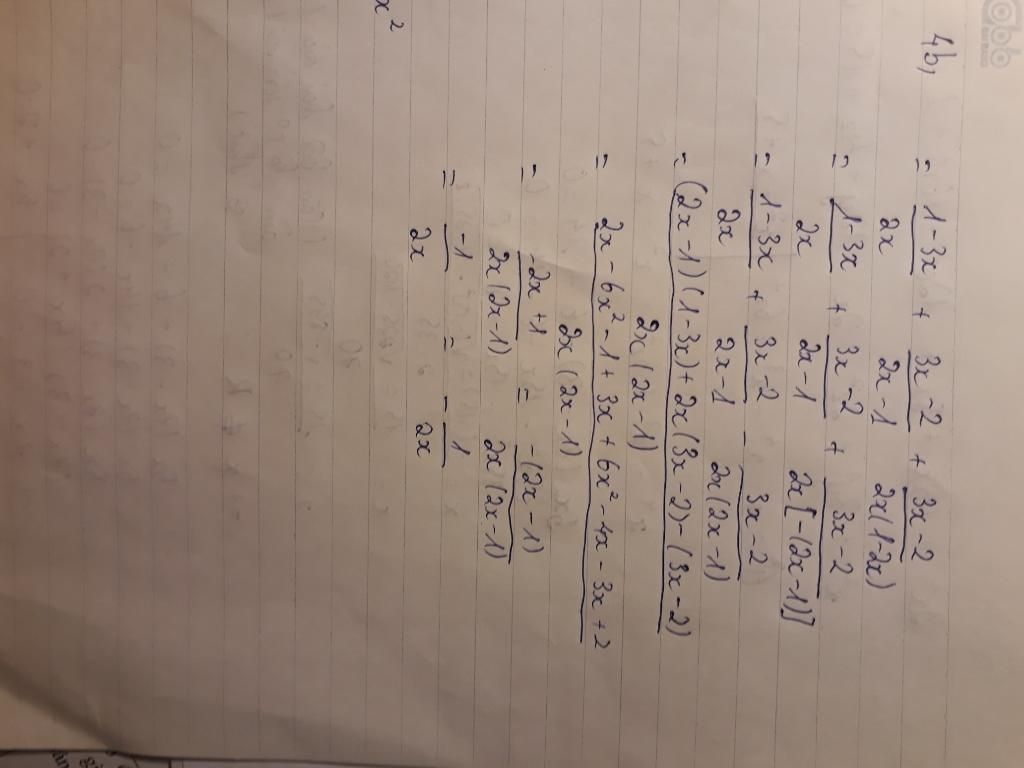 4b,
= 1-3x/2x + 3x-2/2x-1 + 3x-2/2x(1-2x)
= 1-3x/2x + 3x-2/2x-1 + 3x-2/2x[-(2x-1)]
= 1-3x/2x + 3x-2/2x-1 - 3x-2/2x(2x-1)
= (2x-1)(1-3x)+2x(3x-2)-(3x-2)/2x(2x-1)
= 2x-6x²-1+3x+6x²-4x-3x+2/2x(2x-1)
= -2x+1/2x(2x-1) = -(2x-1)/2x(2x-1)
= -1/2x = -1/2x
x²